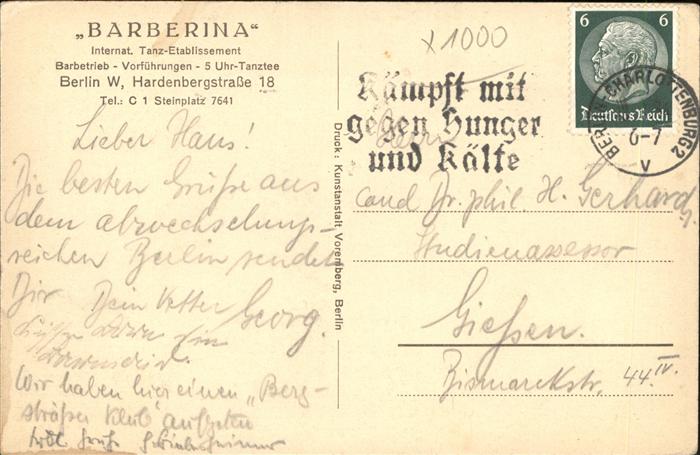 „BARBERINA“
Internat. Tanz-Etablissement
Barbetrieb - Vorführungen - 5 Uhr-Tanztee
Berlin W, Hardenbergstraße 18
Tel.: C 1 Steinplatz 7641
Lieber Hans!
Die besten Grüße aus
dem abwechselungs-
reichen Berlin sendet
Dir Dein Vetter Georg.
Wir haben hier einen „Berg-
sträßer Klub“ aufgetan
Druck: Kunstanstalt Voremberg, Berlin
x1000
6 6
Deutsches Reich
BERLIN-CHARLOTTENBURG 2
6-7
V
Kämpft mit
gegen Hunger
und Kälte
Herrn
cand. Dr. phil. H. Gerhard
Studienassessor
Gießen.
Bismarckstr. 44 IV.